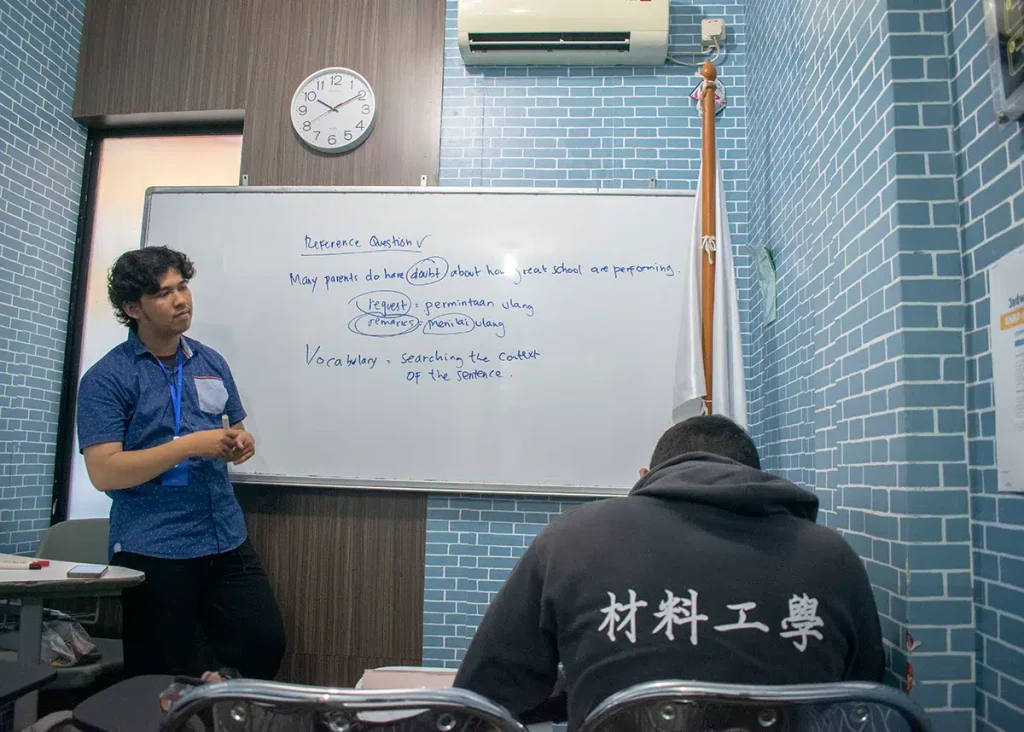 12 1 2 3 4 5 6 7 8 9 10 11
Reference Question ✓
Many parents do have doubt about how great school are performing.
request = permintaan ulang
remarks = menilai ulang
Vocabulary = searching the context
of the sentence.
材料工學